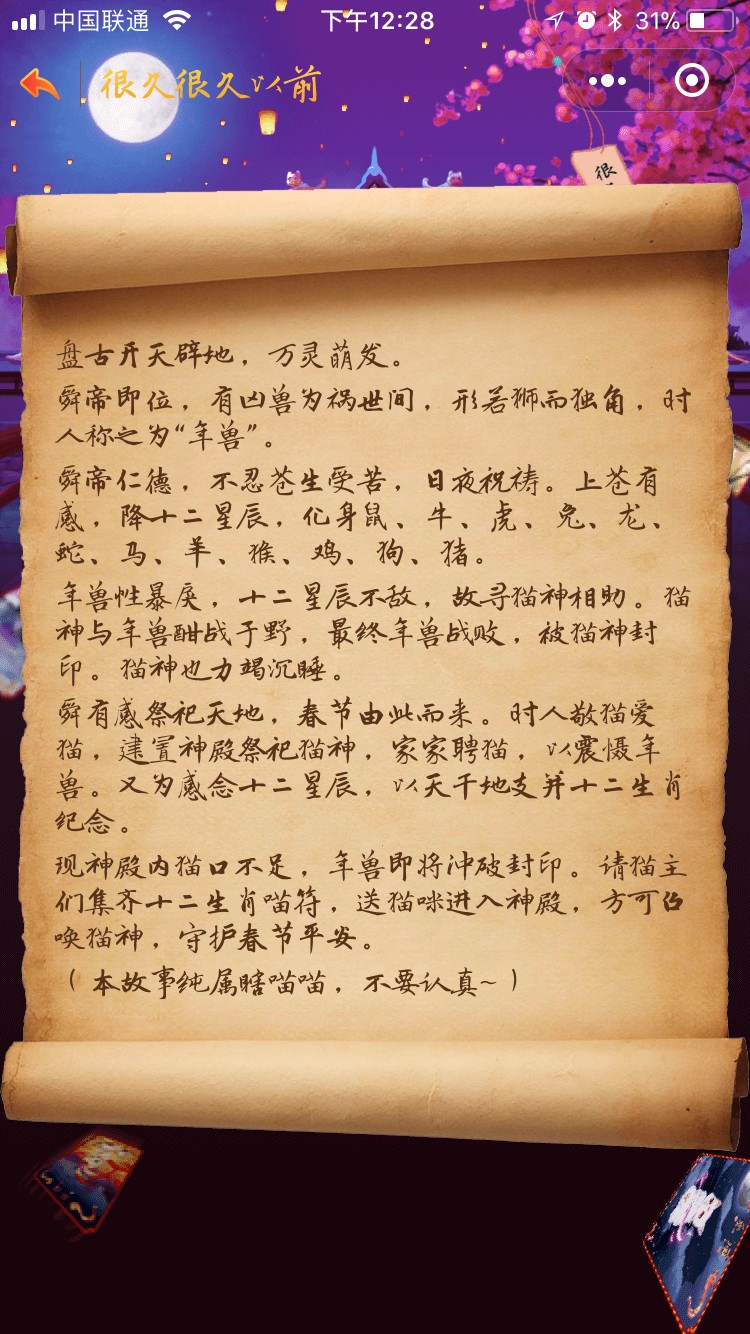 中国联通
下午12:28
31%
很久很久以前
很
盘古开天辟地，万灵萌发。
舜帝即位，有凶兽为祸世间，形若狮而独角，时
人称之为“年兽”。
舜帝仁德，不忍苍生受苦，日夜祝祷。上苍有
感，降十二星辰，化身鼠、牛、虎、兔、龙、
蛇、马、羊、猴、鸡、狗、猪。
年兽性暴戾，十二星辰不敌，故寻猫神相助。猫
神与年兽酣战于野，最终年兽战败，被猫神封
印。猫神也力竭沉睡。
舜有感祭祀天地，春节由此而来。时人敬猫爱
猫，建置神殿祭祀猫神，家家聘猫，以震慑年
兽。又为感念十二星辰，以天干地支并十二生肖
纪念。
现神殿内猫口不足，年兽即将冲破封印。请猫主
们集齐十二生肖喵符，送猫咪进入神殿，方可召
唤猫神，守护春节平安。
（本故事纯属瞎喵喵，不要认真~）